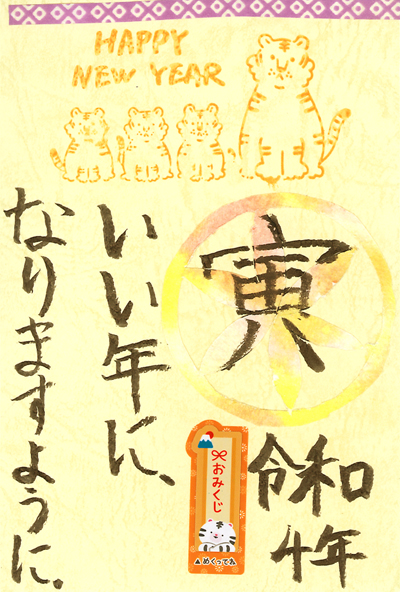 HAPPY
NEW YEAR
寅
令和
4年
いい年に、
なりますように。
おみくじ
▲めくってね